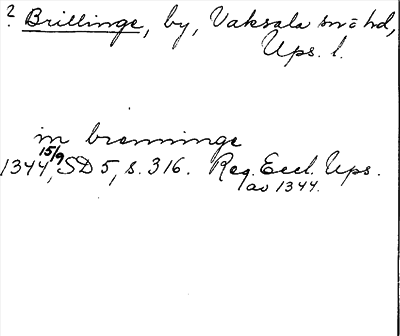 ? Brillinge, by, Vaksala sn = hd,
Ups. l.
in brenninge
1344 15/9, SD 5, s. 316. Reg. Eccl. Ups.
av 1344.